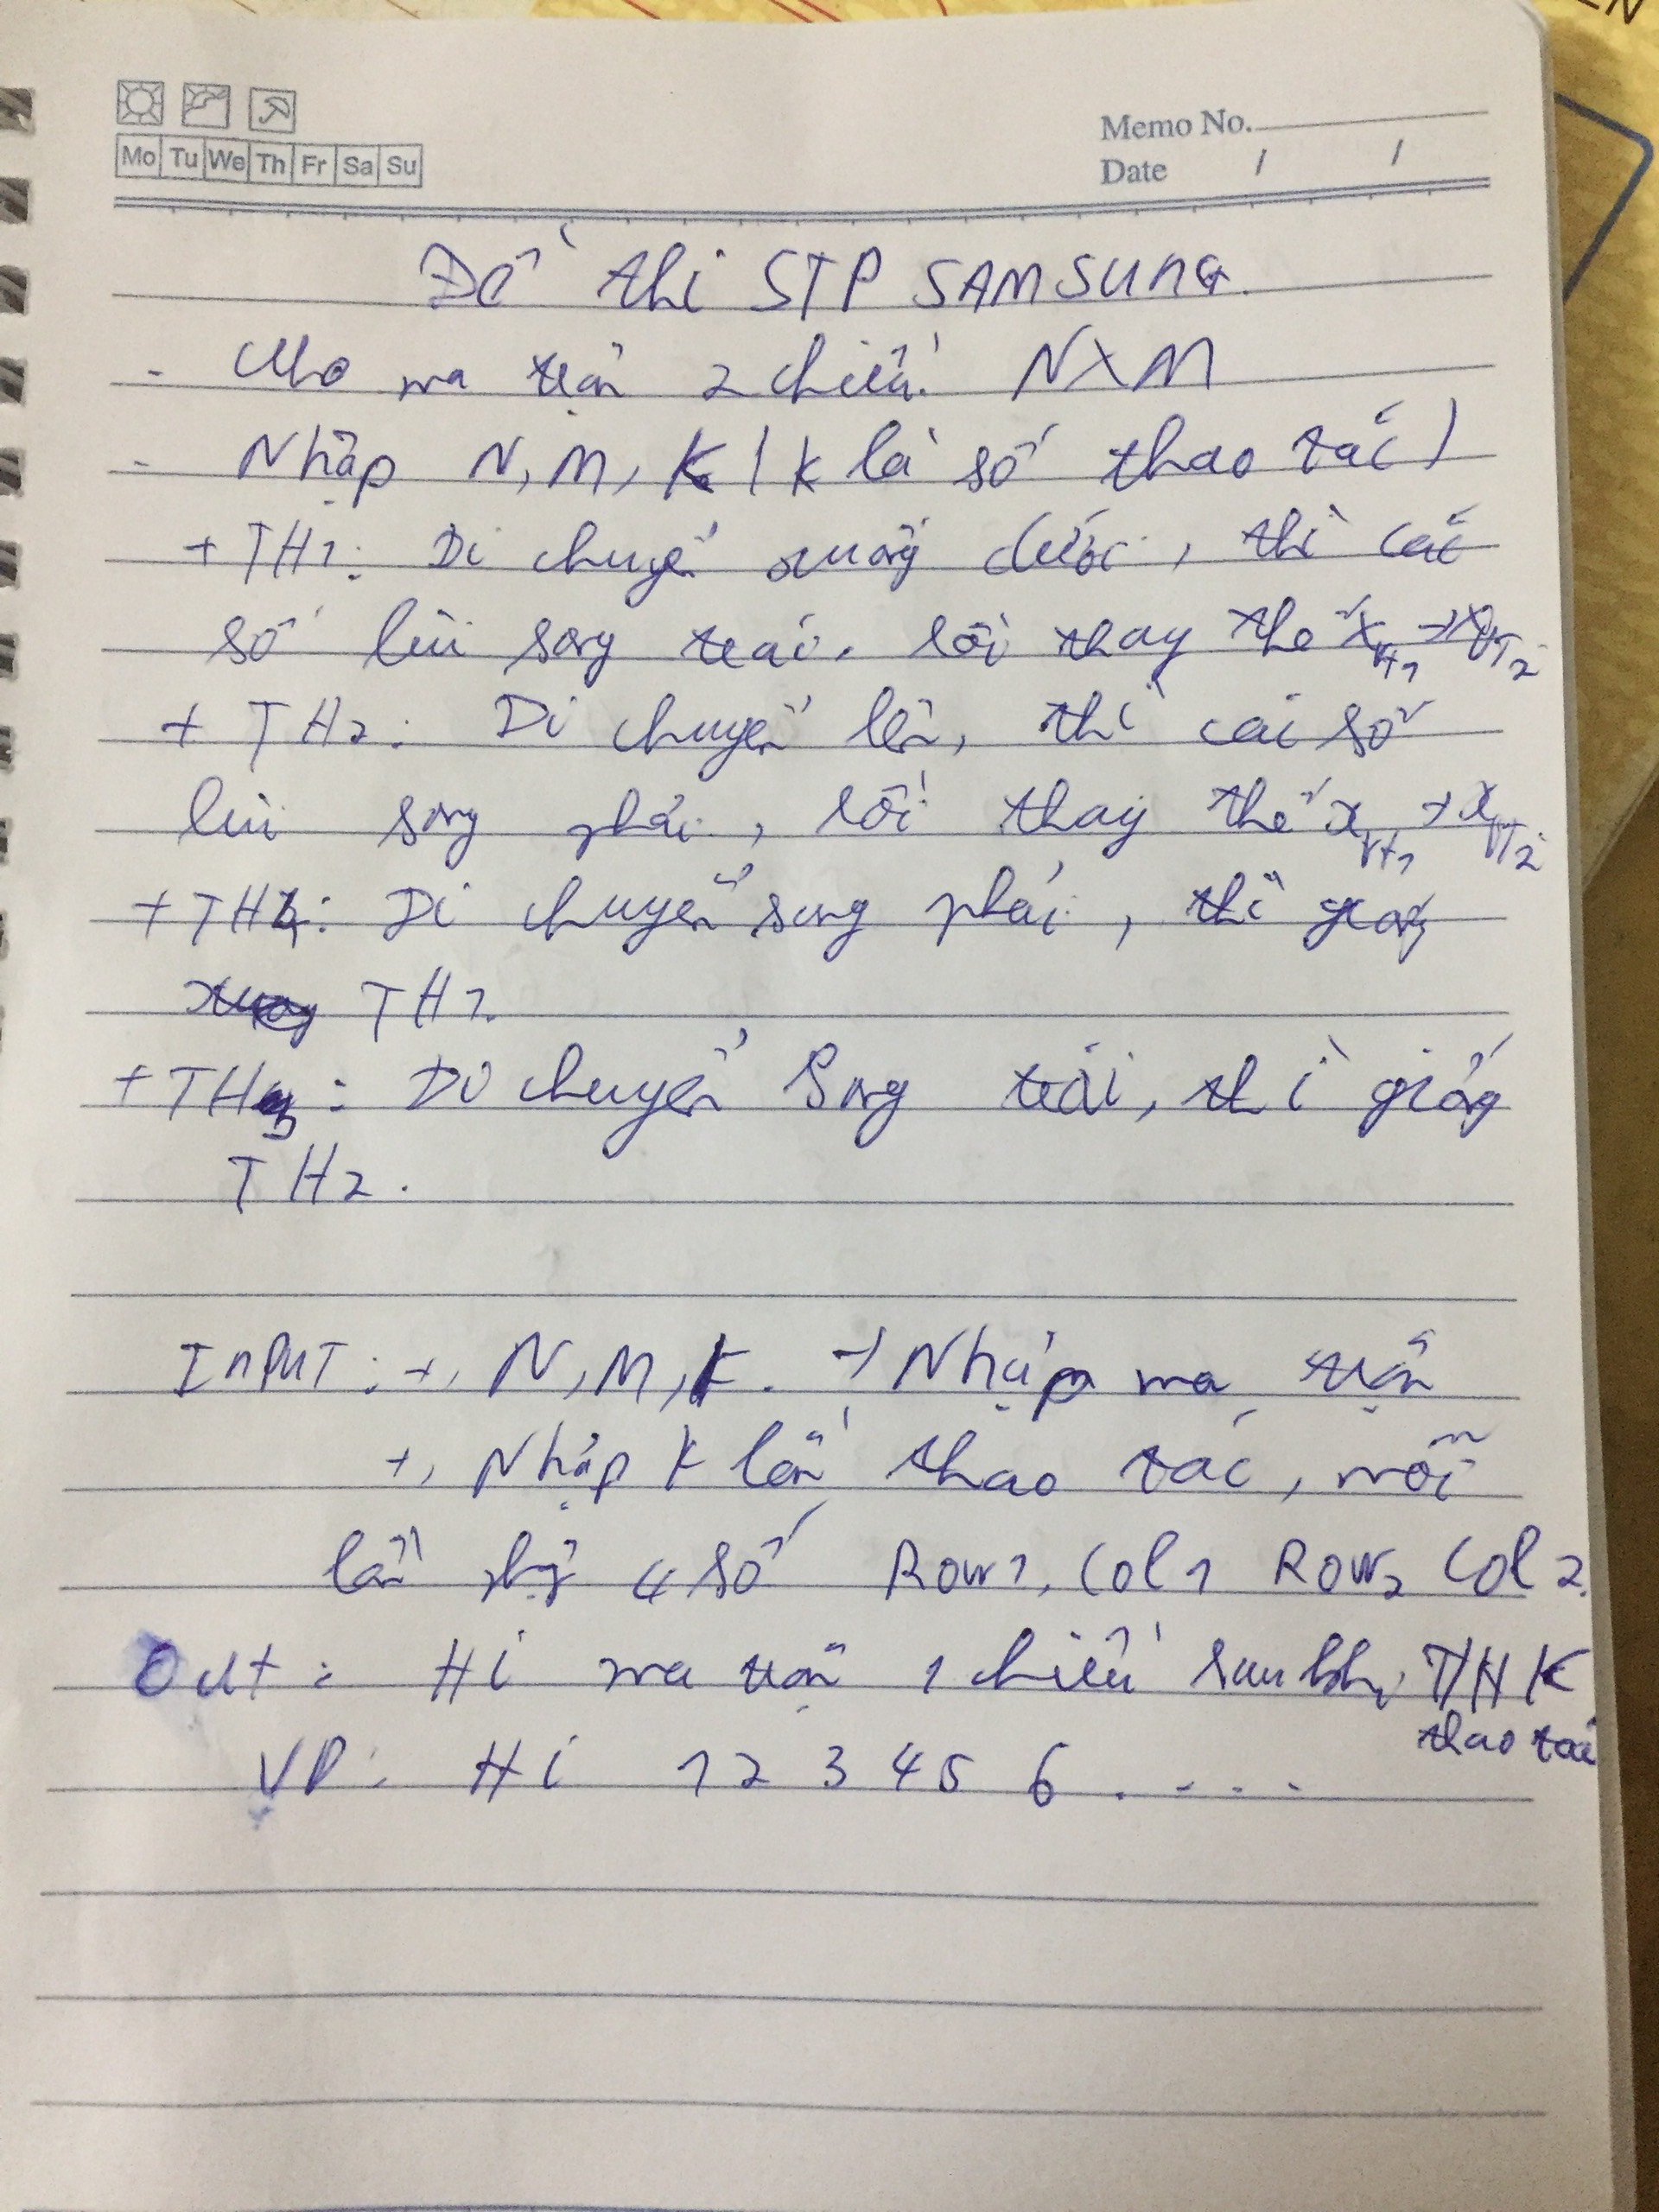 Mo Tu We Th Fr Sa Su
Memo No.
Date / /
Đề thi STP SAMSUNG.
- Cho ma trận 2 chiều NXM
- Nhập N, M, K ( k là số thao tác )
+ TH1: Di chuyển xuống dưới, thì các
số lùi sang trái. rồi thay thế x VT1 → x VT2
+ TH2: Di chuyển lên, thì các số
lùi sang phải, rồi thay thế x VT1 → x VT2
+ TH4: Di chuyển sang phải, thì giống
TH1.
+ TH3: Di chuyển sang trái, thì giống
TH2.
INPUT: +, N, M, K. → Nhập ma trận
+, Nhập k lần thao tác, mỗi
lần nhập 4 số Row1, Col1 Row2 Col2.
Out: Hi ma trận 1 chiều sau khi TH K
thao tác
VD: Hi 1 2 3 4 5 6 . . . .